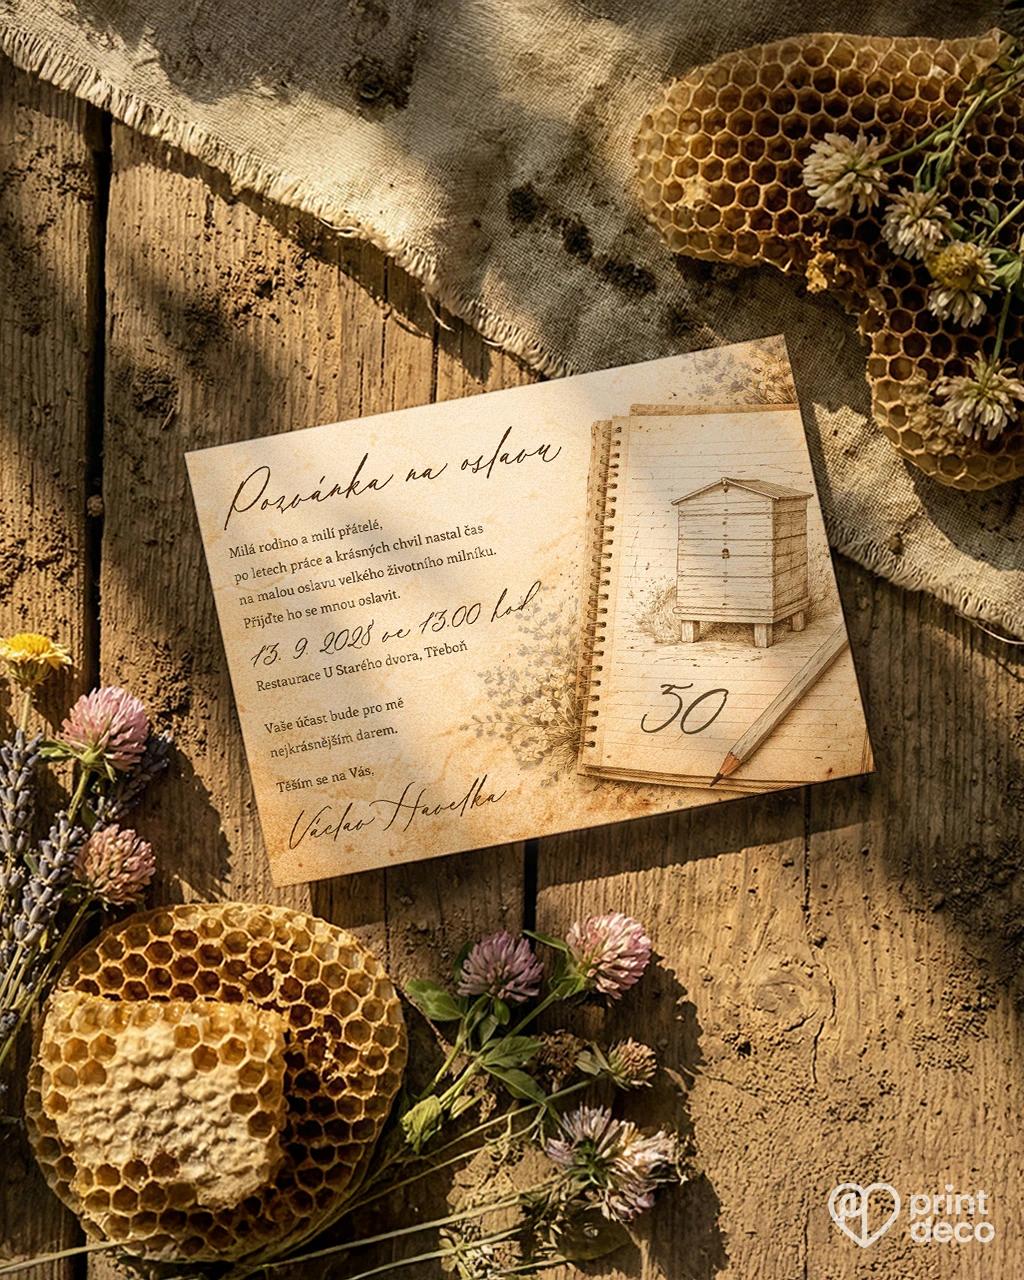 Pozvánka na oslavu
Milá rodino a milí přátelé,
po letech práce a krásných chvil nastal čas
na malou oslavu velkého životního milníku.
Přijďte ho se mnou oslavit.
13. 9. 2028 ve 13.00 hod
Restaurace U Starého dvora, Třeboň
Vaše účast bude pro mě
nejkrásnějším darem.
Těším se na Vás,
Václav Havelka
50
print
deco